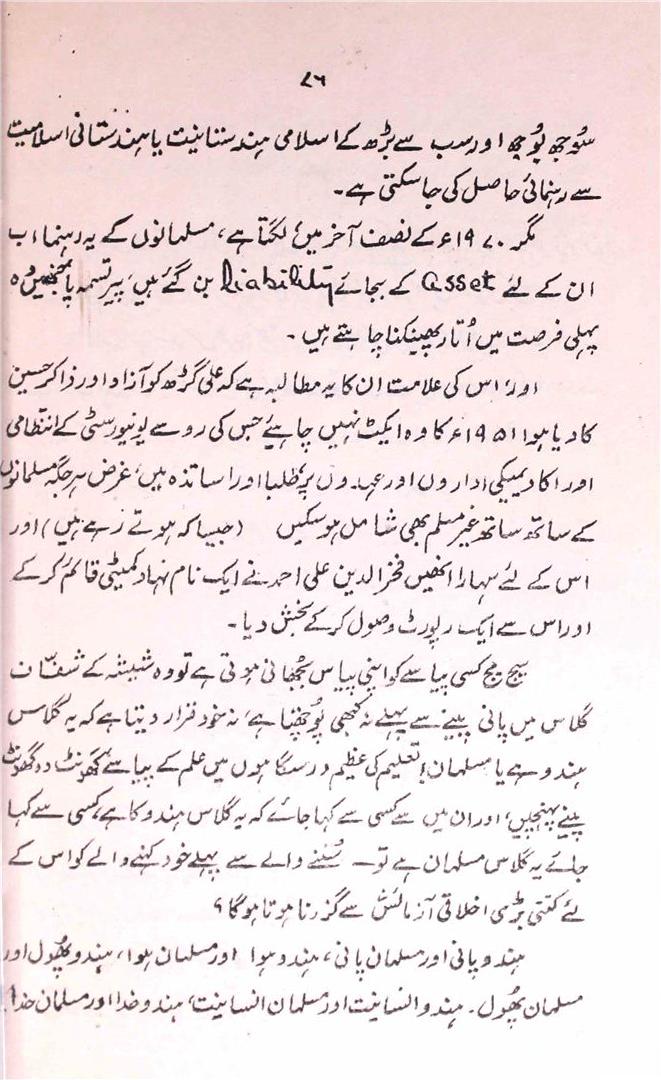 ۷۶
سُوجھ بُوجھ اور سب سے بڑھ کے اسلامی ہندستانیت یا ہندستانی اسلامیت
سے رہنمائی حاصل کی جاسکتی ہے۔
مگر ۱۹۷۰ء کے نصف آخر میں لگتا ہے، مسلمانوں کے یہ رہنما اب
ان کے لئے asset کے بجائے liability بن گئے ہیں، پیر تسمہ پا جنھیں وہ
پہلی فرصت میں اُتار پھینکنا چاہتے ہیں۔
اور، اس کی علامت ان کا یہ مطالبہ ہے کہ علی گڑھ کو آزاد اور ذاکر حسین
کا دیا ہوا ۱۹۵۱ء کا وہ ایکٹ نہیں چاہیئے جس کی رو سے یونیورسٹی کے انتظامی
اور اکادیمیکی اداروں اور عہدوں پر، طلبا اور اساتذہ میں، غرض ہر جگہ مسلمانوں
کے ساتھ ساتھ غیر مسلم بھی شامل ہوسکیں (جیسا کہ ہوتے رہے ہیں) اور
اس کے لئے سہارا انھیں فخر الدین علی احمد نے ایک نام نہاد کمیٹی قائم کرکے
اور اس سے ایک رپورٹ وصول کرکے بخش دیا۔
سچ مچ کسی پیاسے کو اپنی پیاس بُجھانی ہوتی ہے تو وہ شیشہ کے شفّاف
گلاس میں پانی پینے سے پہلے نہ کبھی پوچھتا ہے، نہ خود قرار دیتا ہے کہ یہ گلاس
ہندو ہے یا مسلمان! تعلیم کی عظیم درسگاہوں میں علم کے پیاسے گھونٹ دو گھونٹ
پینے پہنچیں، اور ان میں سے کسی سے کہا جائے کہ یہ گلاس ہندو کا ہے، کسی سے کہا
جائے یہ گلاس مسلمان ہے تو— سُننے والے سے پہلے خود کہنے والے کو اس کے
لئے کتنی بڑی اخلاقی آزمائش سے گزرنا ہوتا ہوگا؟
ہندو پانی اور مسلمان پانی، ہندو ہوا اور مسلمان ہوا، ہندو پھُول اور
مسلمان پھُول۔ ہندو انسانیت اور مسلمان انسانیت، ہندو خدا اور مسلمان خدا!